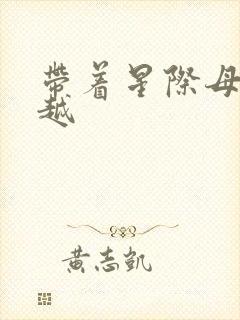 帶着星際母
越
黃志凱